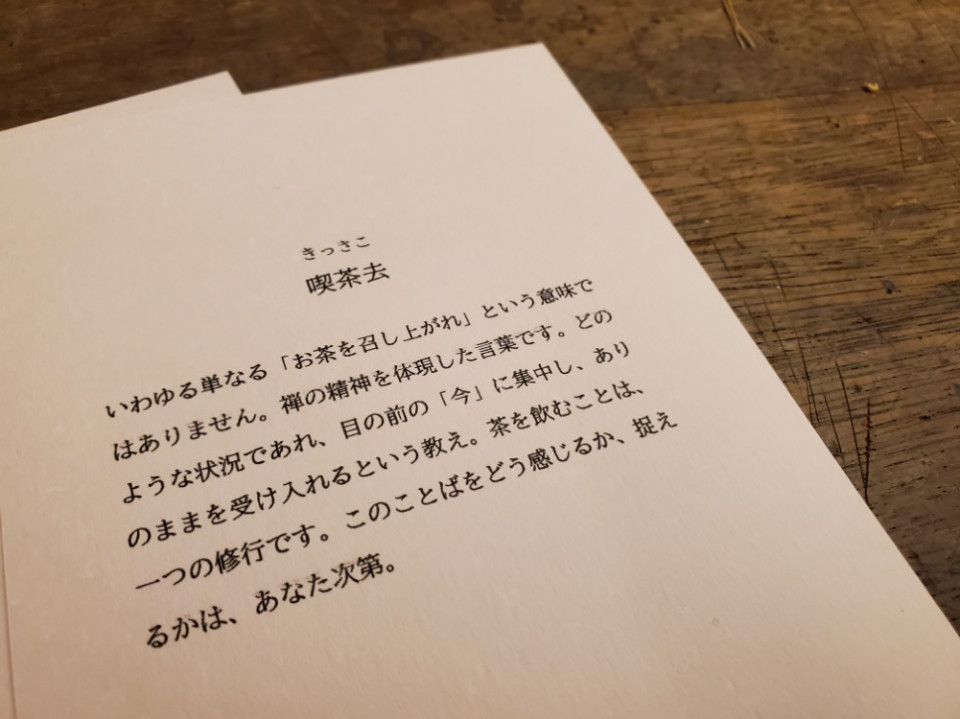 きっさこ
喫茶去
いわゆる単なる「お茶を召し上がれ」という意味で
はありません。禅の精神を体現した言葉です。どの
ような状況であれ、目の前の「今」に集中し、あり
のままを受け入れるという教え。茶を飲むことは、
一つの修行です。このことばをどう感じるか、捉え
るかは、あなた次第。